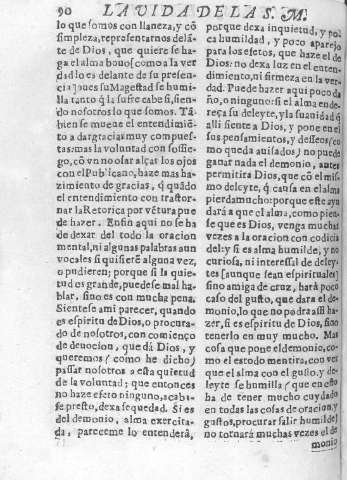 90 LA VIDA DE LA S. M.
lo que somos con llaneza, y cõ
simpleza, representarnos delã-
te de Dios, que quiere se ha-
ga el alma bouo [como a la ver
dad lo es delante de su presen-
cia] pues su Magestad se humi-
lla tanto q̃ la sufre cabe si, sien-
do nosotros lo que somos. Tã-
bien se mueue el entendimiẽ-
to a dar gracias muy compues-
tas: mas la voluntad con sosie-
go, cõ vn no osar alçar los ojos
con el Publicano, haze mas ha-
zimiento de gracias, q̃ quãdo
el entendimiento con trastor-
nar la Retorica por vẽtura pue
de hazer. En fin aqui no se ha
de dexar del todo la oracion
mental, ni algunas palabras aun
vocales si quisierẽ alguna vez,
o pudieren; porque si la quie-
tud es grande, puedese mal ha-
blar, sino es con mucha pena.
Sientese a mi parecer, quando
es espiritu de Dios, o procura-
do de nosotros, con comienço
de deuocion, que dà Dios, y
queremos (como he dicho)
passar nosotros a esta quietud
de la voluntad; que entonces
no haze efeto ninguno, acaba-
se presto, dexa sequedad. Si es
del demonio, alma exercita-
da, pareceme lo entenderà,
porque dexa inquietud, y po-
ca humildad, y poco aparejo
para los efetos, que haze el de
Dios: no dexa luz en el enten-
dimiento, ni firmeza en la ver-
dad. Puede hazer aqui poco da
ño, o ninguno: si el alma ende-
reça su deleyte, y la suauidad q̃
alli siente a Dios, y pone en el
sos pensamientos, y desseos, (co
mo queda auisado) no puede
ganar nada el demonio, antes
permitira Dios, que cõ el mis-
mo deleyte, q̃ causa en el alma
pierda mucho: porque este ayu
darà a que el alma, como pien-
se que es Dios, venga muchas
vezes a la oracion con codicia
del: y si es alma humilde, y no
curiosa, ni interessal de deley-
tes [aunque sean espirituales]
sino amiga de cruz, harà poco
caso del gusto, que dara el de-
monio, lo que no podrà assi ha-
zer, si es espiritu de Dios, sino
tenerlo en muy mucho. Mas
cosa que pone el demonio, co-
mo el es todo mentira, con ver
que el alma con el gusto, y de-
leyte se humilla (que en esto
ha de tener mucho cuydado
en todas las cosas de oracion, y
gustos, procurar salir humilde)
no tornarà muchas vezes el de
monio